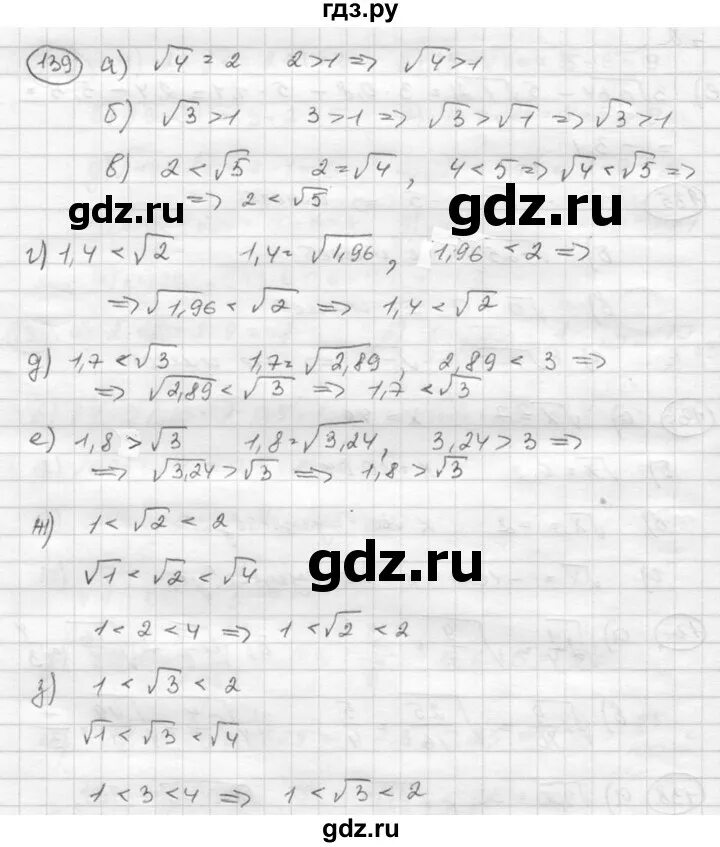 гдз.ру
139 а) √4 = 2 2>1 => √4>1
б) √3>1 3>1 => √3>√1 => √3>1
в) 2<√5 2=√4, 4<5 => √4<√5 =>
=> 2<√5
gdz.ru gdz.ru
г) 1,4<√2 1,4=√1,96, 1,96<2 =>
=> √1,96<√2 => 1,4<√2
д) 1,7<√3 1,7=√2,89, 2,89<3 =>
=> √2,89<√3 => 1,7<√3
е) 1,8>√3 1,8=√3,24, 3,24>3 =>
=> √3,24>√3 => 1,8>√3
ж) 1<√2<2
gdz.ru
√1<√2<√4
1<2<4 => 1<√2<2
з) 1<√3<2
√1<√3<√4
1<3<4 => 1<√3<2
gdz.ru